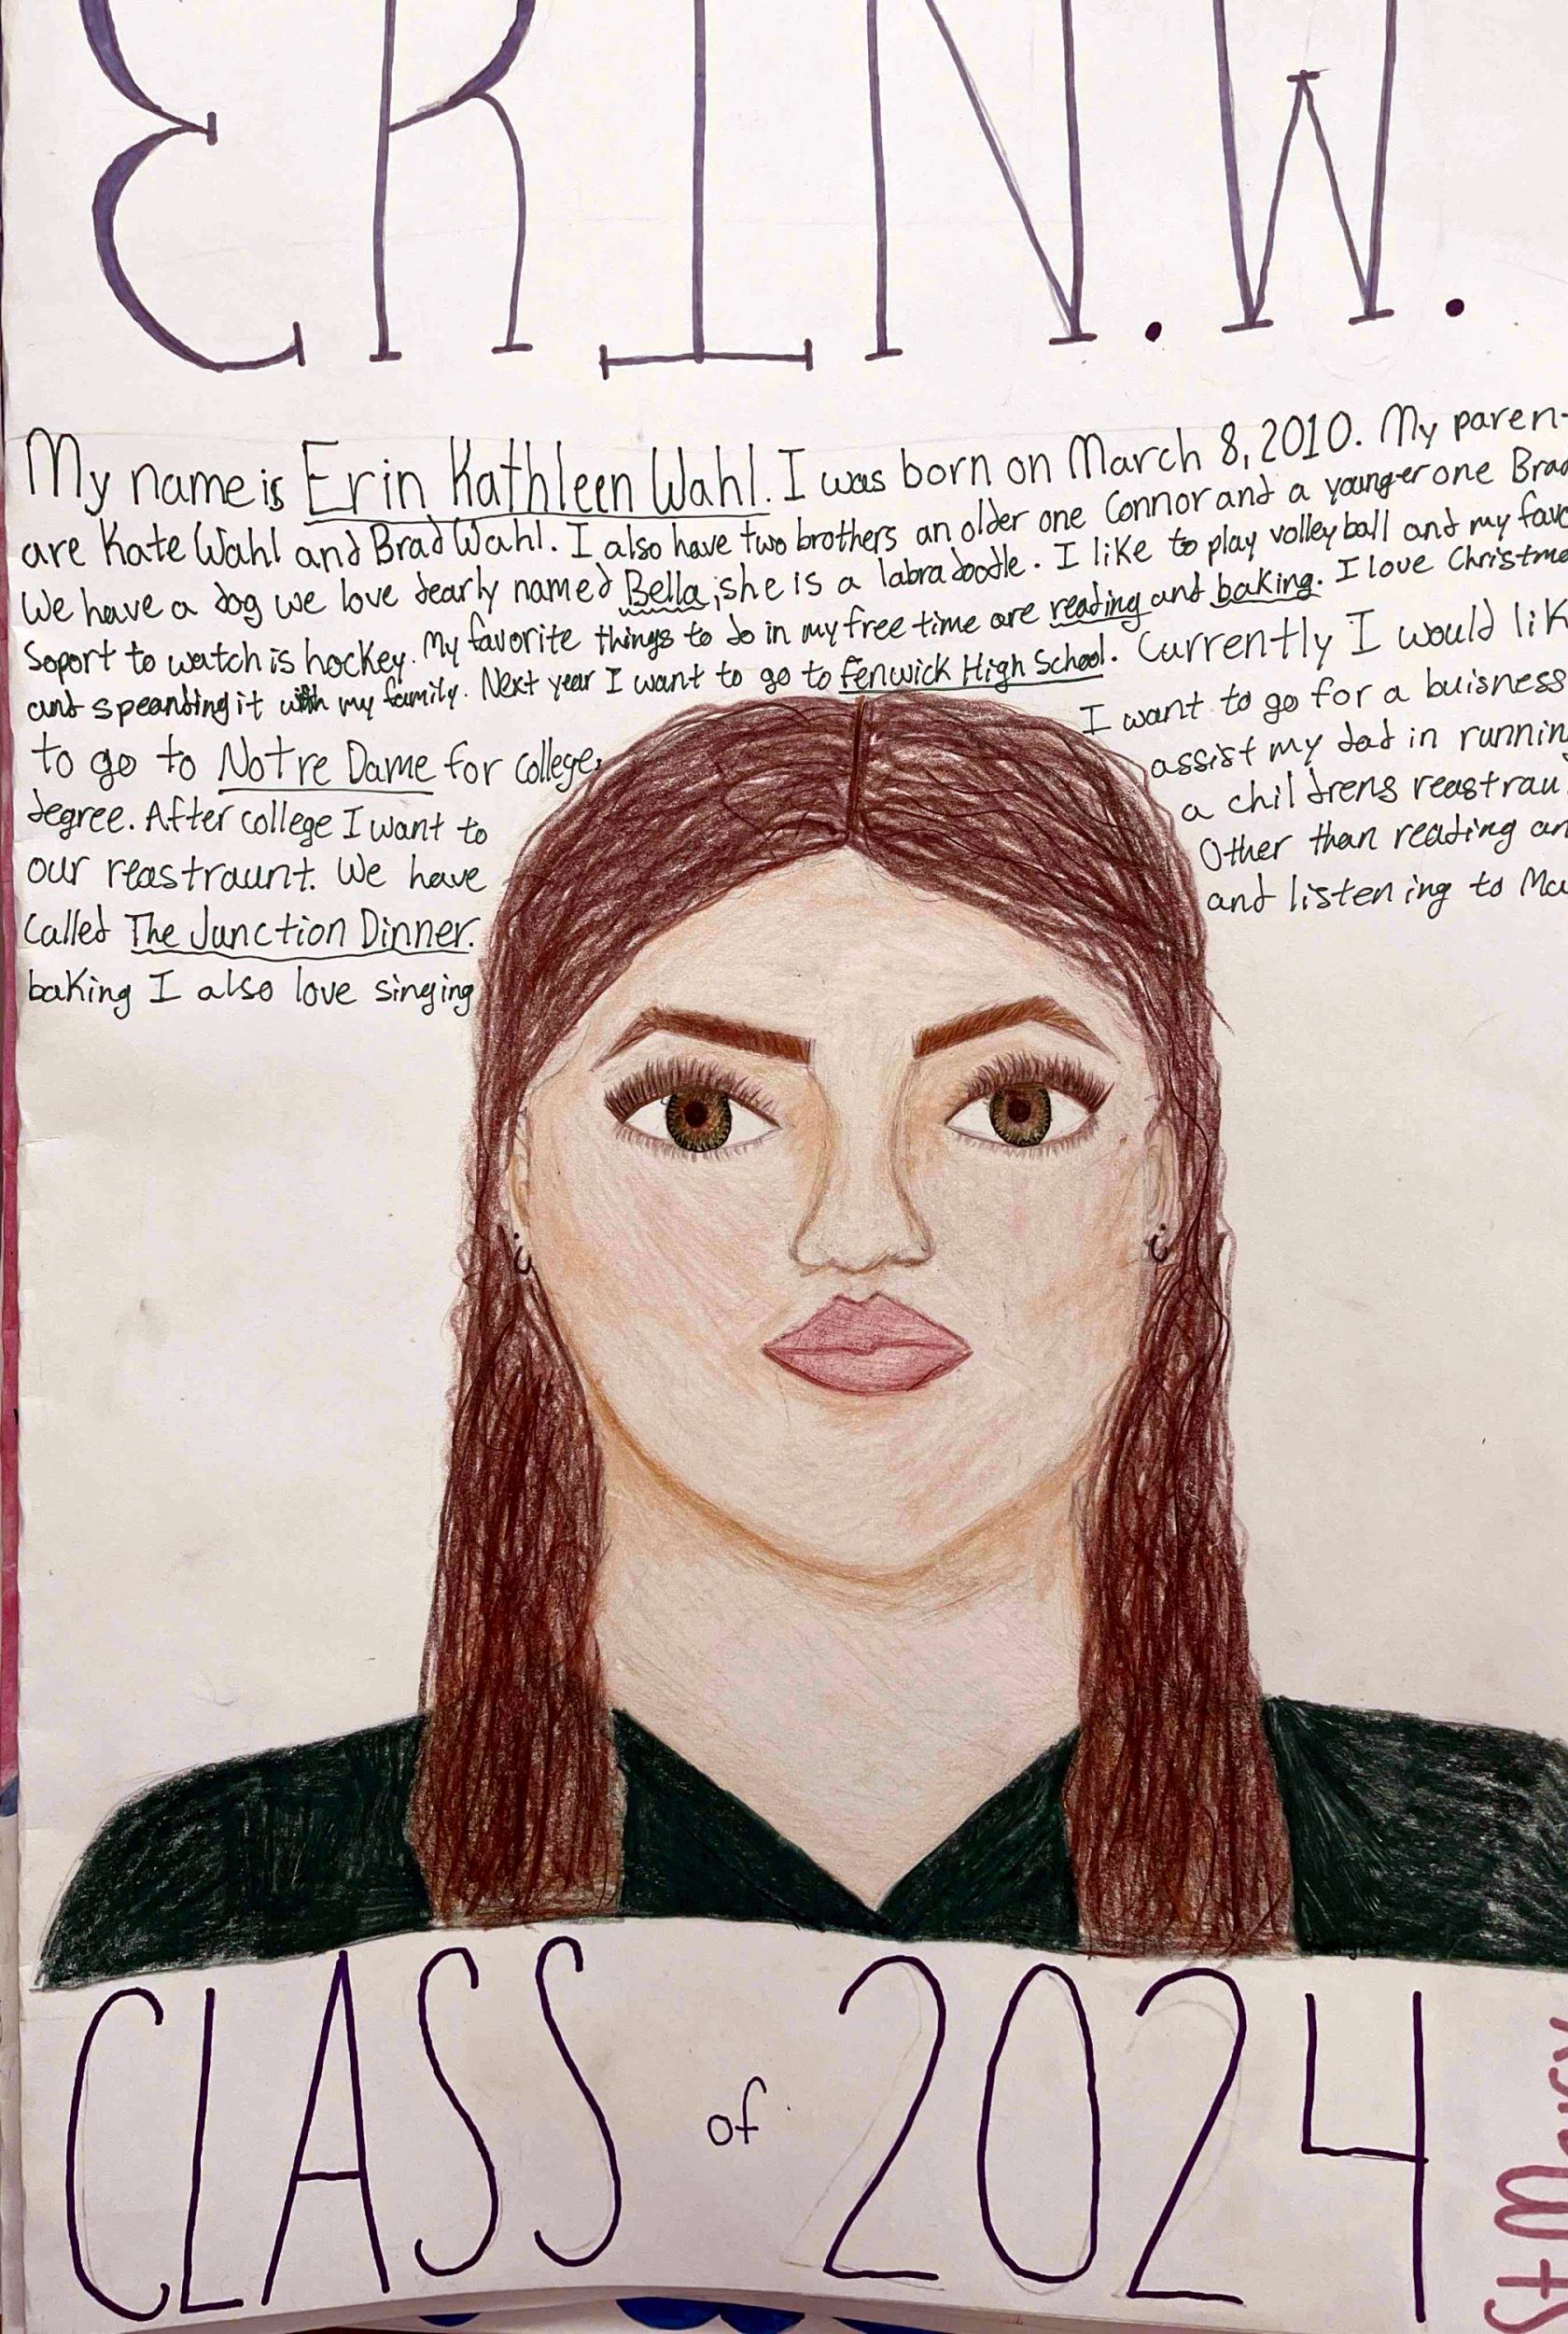 ERIN.W.
My name is Erin Kathleen Wahl. I was born on March 8, 2010. My paren-
are Kate Wahl and Brad Wahl. I also have two brothers an older one Connor and a younger one Brad
We have a dog we love dearly named Bella, she is a labradoodle. I like to play volleyball and my favo
Soport to watch is hockey. My favorite things to do in my free time are reading and baking. I love Christma
and speanding it with my family. Next year I want to go to Fenwick High School. Currently I would lik
to go to Notre Dame for college, I want to go for a buisness
degree. After college I want to assist my dad in runnin
our reastraunt. We have a childrens reastrau
Called The Junction Dinner. Other than reading an
baking I also love singing and listening to Ma
CLASS of 2024
St Mary